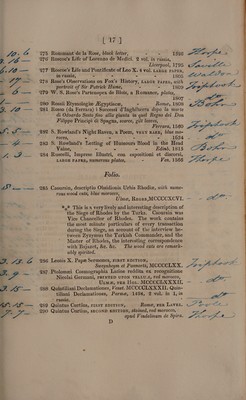 [ 17 ]
10. 6 275 Rommant de la Rose, black letter, - 1538 Thorpe
276 Roscoe's Life of Lorenzo de Medici, 2 vol. in russia,
Liverpool, 1795 Saville
277 Roscoe's Life and Pontificate of Leo X. 4 vol. LARGE PAPER,
in russia, - 1805 Waldron
278 Rose's Observations on Fox's History, LARGE PAPER, with
portrait of Sir Patrick Hume, 1809 Triphook
279 W. S. Rose's Partenopex de Blois, a Romance, plates,
1807 do
280 Rossii Etymologiæ Ægyptiacæ, Romæ, 1808 Bohn
281 Rosso (da Ferrara) i Successi d'Inghilterra dopo la morte
di Odoardo Sesto fino alla giunta in quel Regno del Don
Filippo Principi di Spagna, scarce, gilt leaves,
Ferrara, 1560 Triphook
5. 5 282 S. Rowland's Night Raven, a Poem, VERY RARE, blue mo-
rocco, 1634 do
283 S. Rowland's Letting of Humours Blood in the Head
Vaine, Edinb. 1815 Bohn
1. 3 284 Ruscelli, Imprese Illustri, con espositioni et discorsi,
LARGE PAPER, numerous plates, Ven. 1566 Thorpe
Folio.
18 285 Caoursin, descriptio Obsidionis Urbis Rhodiæ, with nume-
rous wood cuts, blue morocco,
Ulmæ, REGER, MCCCCXCVI. do
*** This is a very lively and interesting description of the
Siege of Rhodes by the Turks. Caoursin was
Vice Chancellor of Rhodes. The work contains
the most minute particulars of every transaction
during the Siege, an account of the interview be-
tween Zyzymus the Turkish Commander, and the
Master of Rhodes, the interesting correspondence
with Bajazet, &c. &c. The wood cuts are remark-
ably spirited.
286 Leonis X. Papæ Sermones, FIRST EDITION,
Sweynheym et Pannartz, MCCCCLXX. Triphook
287 Ptolomæi Cosmographia Latine reddita ex recognitione
Nicolai Germani, PRINTED UPON VELLUM, red morocco,
ULMÆ, PER HOL. MCCCCLXXXII.
288 Quintiliani Declamationes, Venet. MCCCCLXXXII; Quin-
tiliani Declamationes, Parmæ, 1494, 2 vol. in 1, in
russia, do
15. 15 289 Quintus Curtius, FIRST EDITION, Romæ, PER LAVER.
7. 7 290 Quintus Curtius, SECOND EDITION, stained, red morocco,
apud Vindelinum de Spira. Thorpe
D